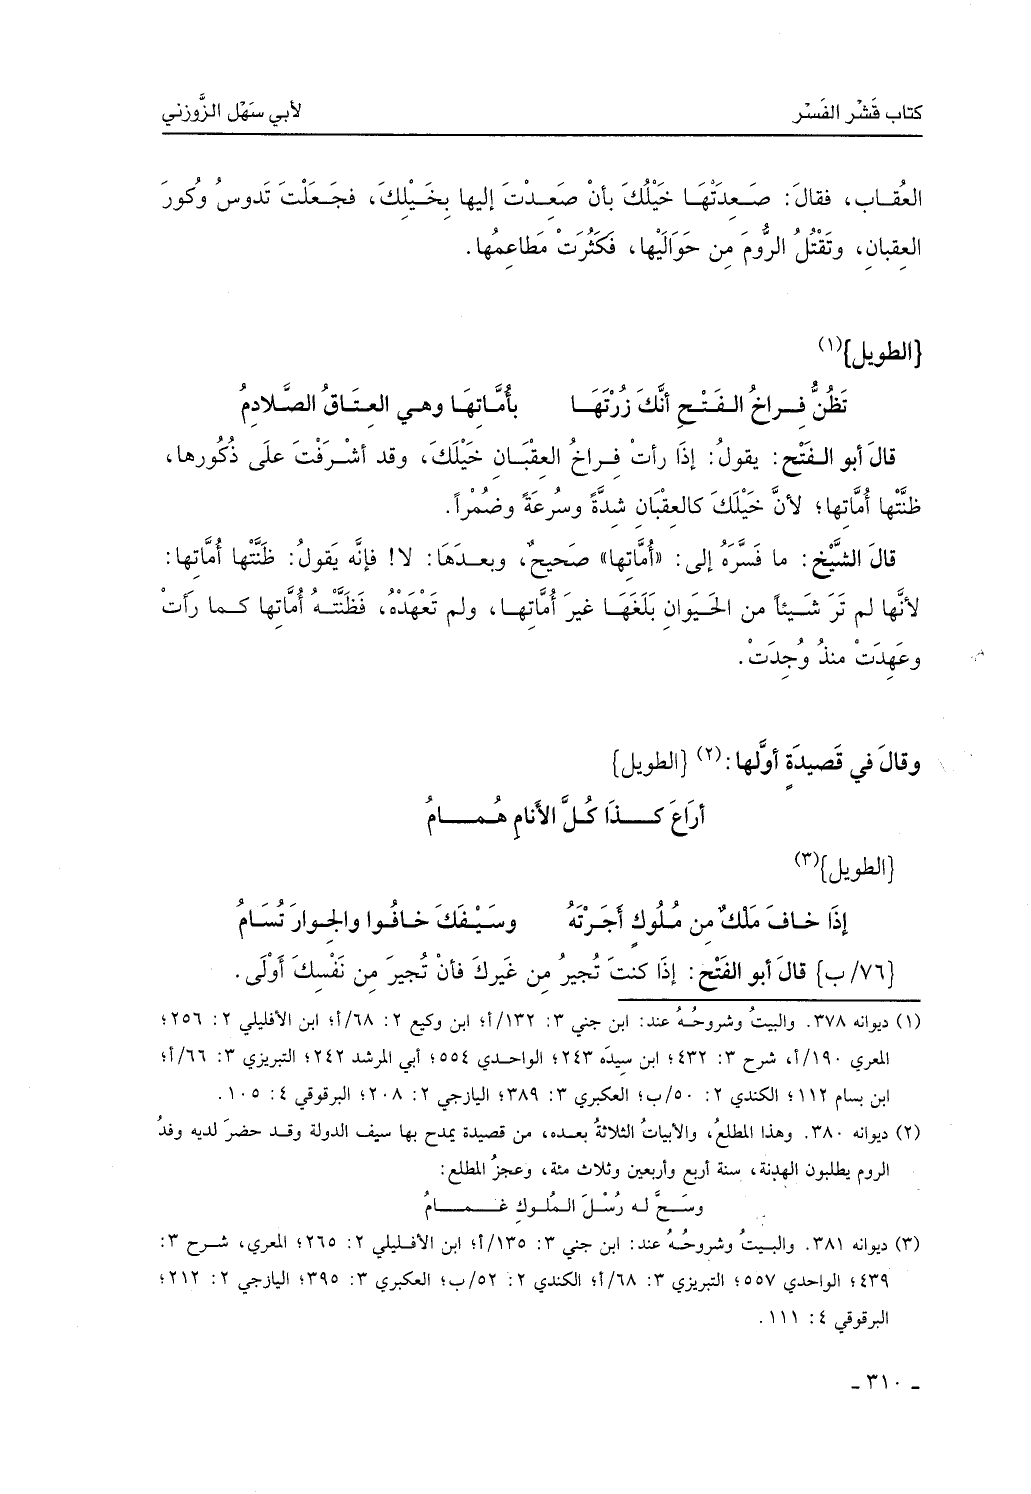 كتاب قَشْر الفَسْر لأبي سَهْل الزَّوزني
العُقـاب، فقالَ: صَـعِدَتْهَـا خَيْلُكَ بأنْ صَعِـدْتَ إليها بِخَيْلِكَ، فجَـعَلْتَ تَدوسُ وُكورَ
العِقبانِ، وتَقْتُلُ الرُّومَ مِن حَوَالَيْها، فَكَثُرَتْ مَطاعِمُها.
{الطويل}(١)
تَظُنُّ فِـراخُ الـفَتْـخِ أنَّكَ زُرْتَهَـا بأُمَّـاتِهَـا وهـي العِتـاقُ الصَّـلادِمُ
قالَ أبو الـفَتْح: يقولُ: إذَا رأتْ فِـراخُ العِقْبَـانِ خَيْلَكَ، وقد أشْـرَفْتَ على ذُكُورها،
ظنَّتْها أُمَّاتِها؛ لأنَّ خَيْلَكَ كالعِقْبَانِ شدَّةً وسُرعَةً وضُمْراً.
قالَ الشَّيْخ: ما فَسَّرَهُ إلى: «أُمَّاتِها» صَحيحٌ، وبعـدَهَا: لا! فإنَّه يَقولُ: ظَنَّتْها أُمَّاتِها:
لأنَّها لم تَرَ شَـيئاً من الحَيَوانِ بَلَغَهَـا غيرَ أُمَّاتِهـا، ولم تَعْهَدْهُ، فَظَنَّتْـهُ أُمَّاتِها كـما رَأَتْ
وعَهِدَتْ منذُ وُجِدَتْ.
وقالَ في قَصيدَةٍ أوَّلها:(٢) {الطويل}
أرَاعَ كـــذَا كُـلَّ الأَنامِ هُـمـــامُ
{الطويل}(٣)
إذَا خـافَ مَلْكٌ مِن مُـلُوكٍ أَجَـرْتَهُ وسَـيْـفَكَ خـافُـوا والجِـوارَ تُسَـامُ
{٧٦/ب} قالَ أبو الفَتْح: إذَا كنتَ تُجيرُ مِن غَيرِكَ فأنْ تُجيرَ مِن نَفْسِكَ أَوْلَى.
(١) ديوانه ٣٧٨. والبيتُ وشروحُـهُ عند: ابن جني ٣: ١٣٢/أ؛ ابن وكيع ٢: ٦٨/أ؛ ابن الأفليلي ٢: ٢٥٦؛
المعري ١٩٠/أ، شرح ٣: ٤٣٢؛ ابن سِيدَه ٢٤٣؛ الواحـدي ٥٥٤؛ أبي المرشد ٢٤٢؛ التبريزي ٣: ٦٦/أ؛
ابن بسام ١١٢؛ الكندي ٢: ٥٠/ب؛ العكبري ٣: ٣٨٩؛ اليازجي ٢: ٢٠٨؛ البرقوقي ٤: ١٠٥.
(٢) ديوانه ٣٨٠. وهذا المطلعُ، والأبياتُ الثلاثةُ بعده، من قصيدة يمدح بها سيف الدولة وقـد حضرَ لديه وفدُ
الروم يطلبون الهدنة، سنة أربع وأربعين وثلاث مئة، وعجزُ المطلع:
وسَـحَّ لـه رُسْـلَ الـمُلـوكِ غـمـــامُ
(٣) ديوانه ٣٨١. والبـيتُ وشروحُـهُ عند: ابن جني ٣: ١٣٥/أ؛ ابن الأفـليلي ٢: ٢٦٥؛ المعري، شـرح ٣:
٤٣٩؛ الواحدي ٥٥٧؛ التبريزي ٣: ٦٨/أ؛ الكندي ٢: ٥٢/ب؛ العكبري ٣: ٣٩٥؛ اليازجي ٢: ٢١٢؛
البرقوقي ٤: ١١١.
- ٣١٠ -